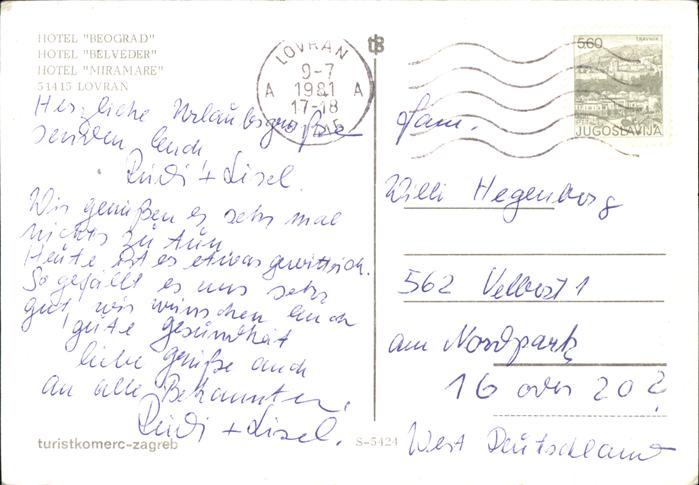 HOTEL "BEOGRAD"
HOTEL "BELVEDER"
HOTEL "MIRAMARE"
51415 LOVRAN
Herzliche Urlaubsgrüße
senden Euch
Rudi + Lisel.
Wir genießen es sehr mal
nichts zu tun
Heute ist es etwas gewittrich.
So gefällt es uns sehr
gut, wir wünschen Euch
gute Gesundheit
liebe grüße auch
an alle Bekannten,
Rudi + Lisel.
turistkomerc-zagreb
S-5424
LOVRAN
9-7
A 1981 A
17-18
TRAVNIK
5.60
JUGOSLAVIJA
Fam.
Willi Hegenberg
562 Velbert 1
am Nordpark
16 oder 20?
West Deutschland